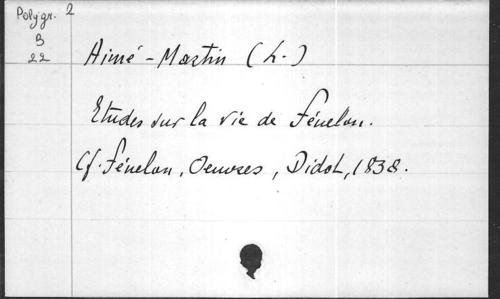 Polygr. 2
B
22
Aimé-Martin (L.)
Etudes sur la vie de Fénelon.
Cf. Fénelon, Oeuvres, Didot, 1838.